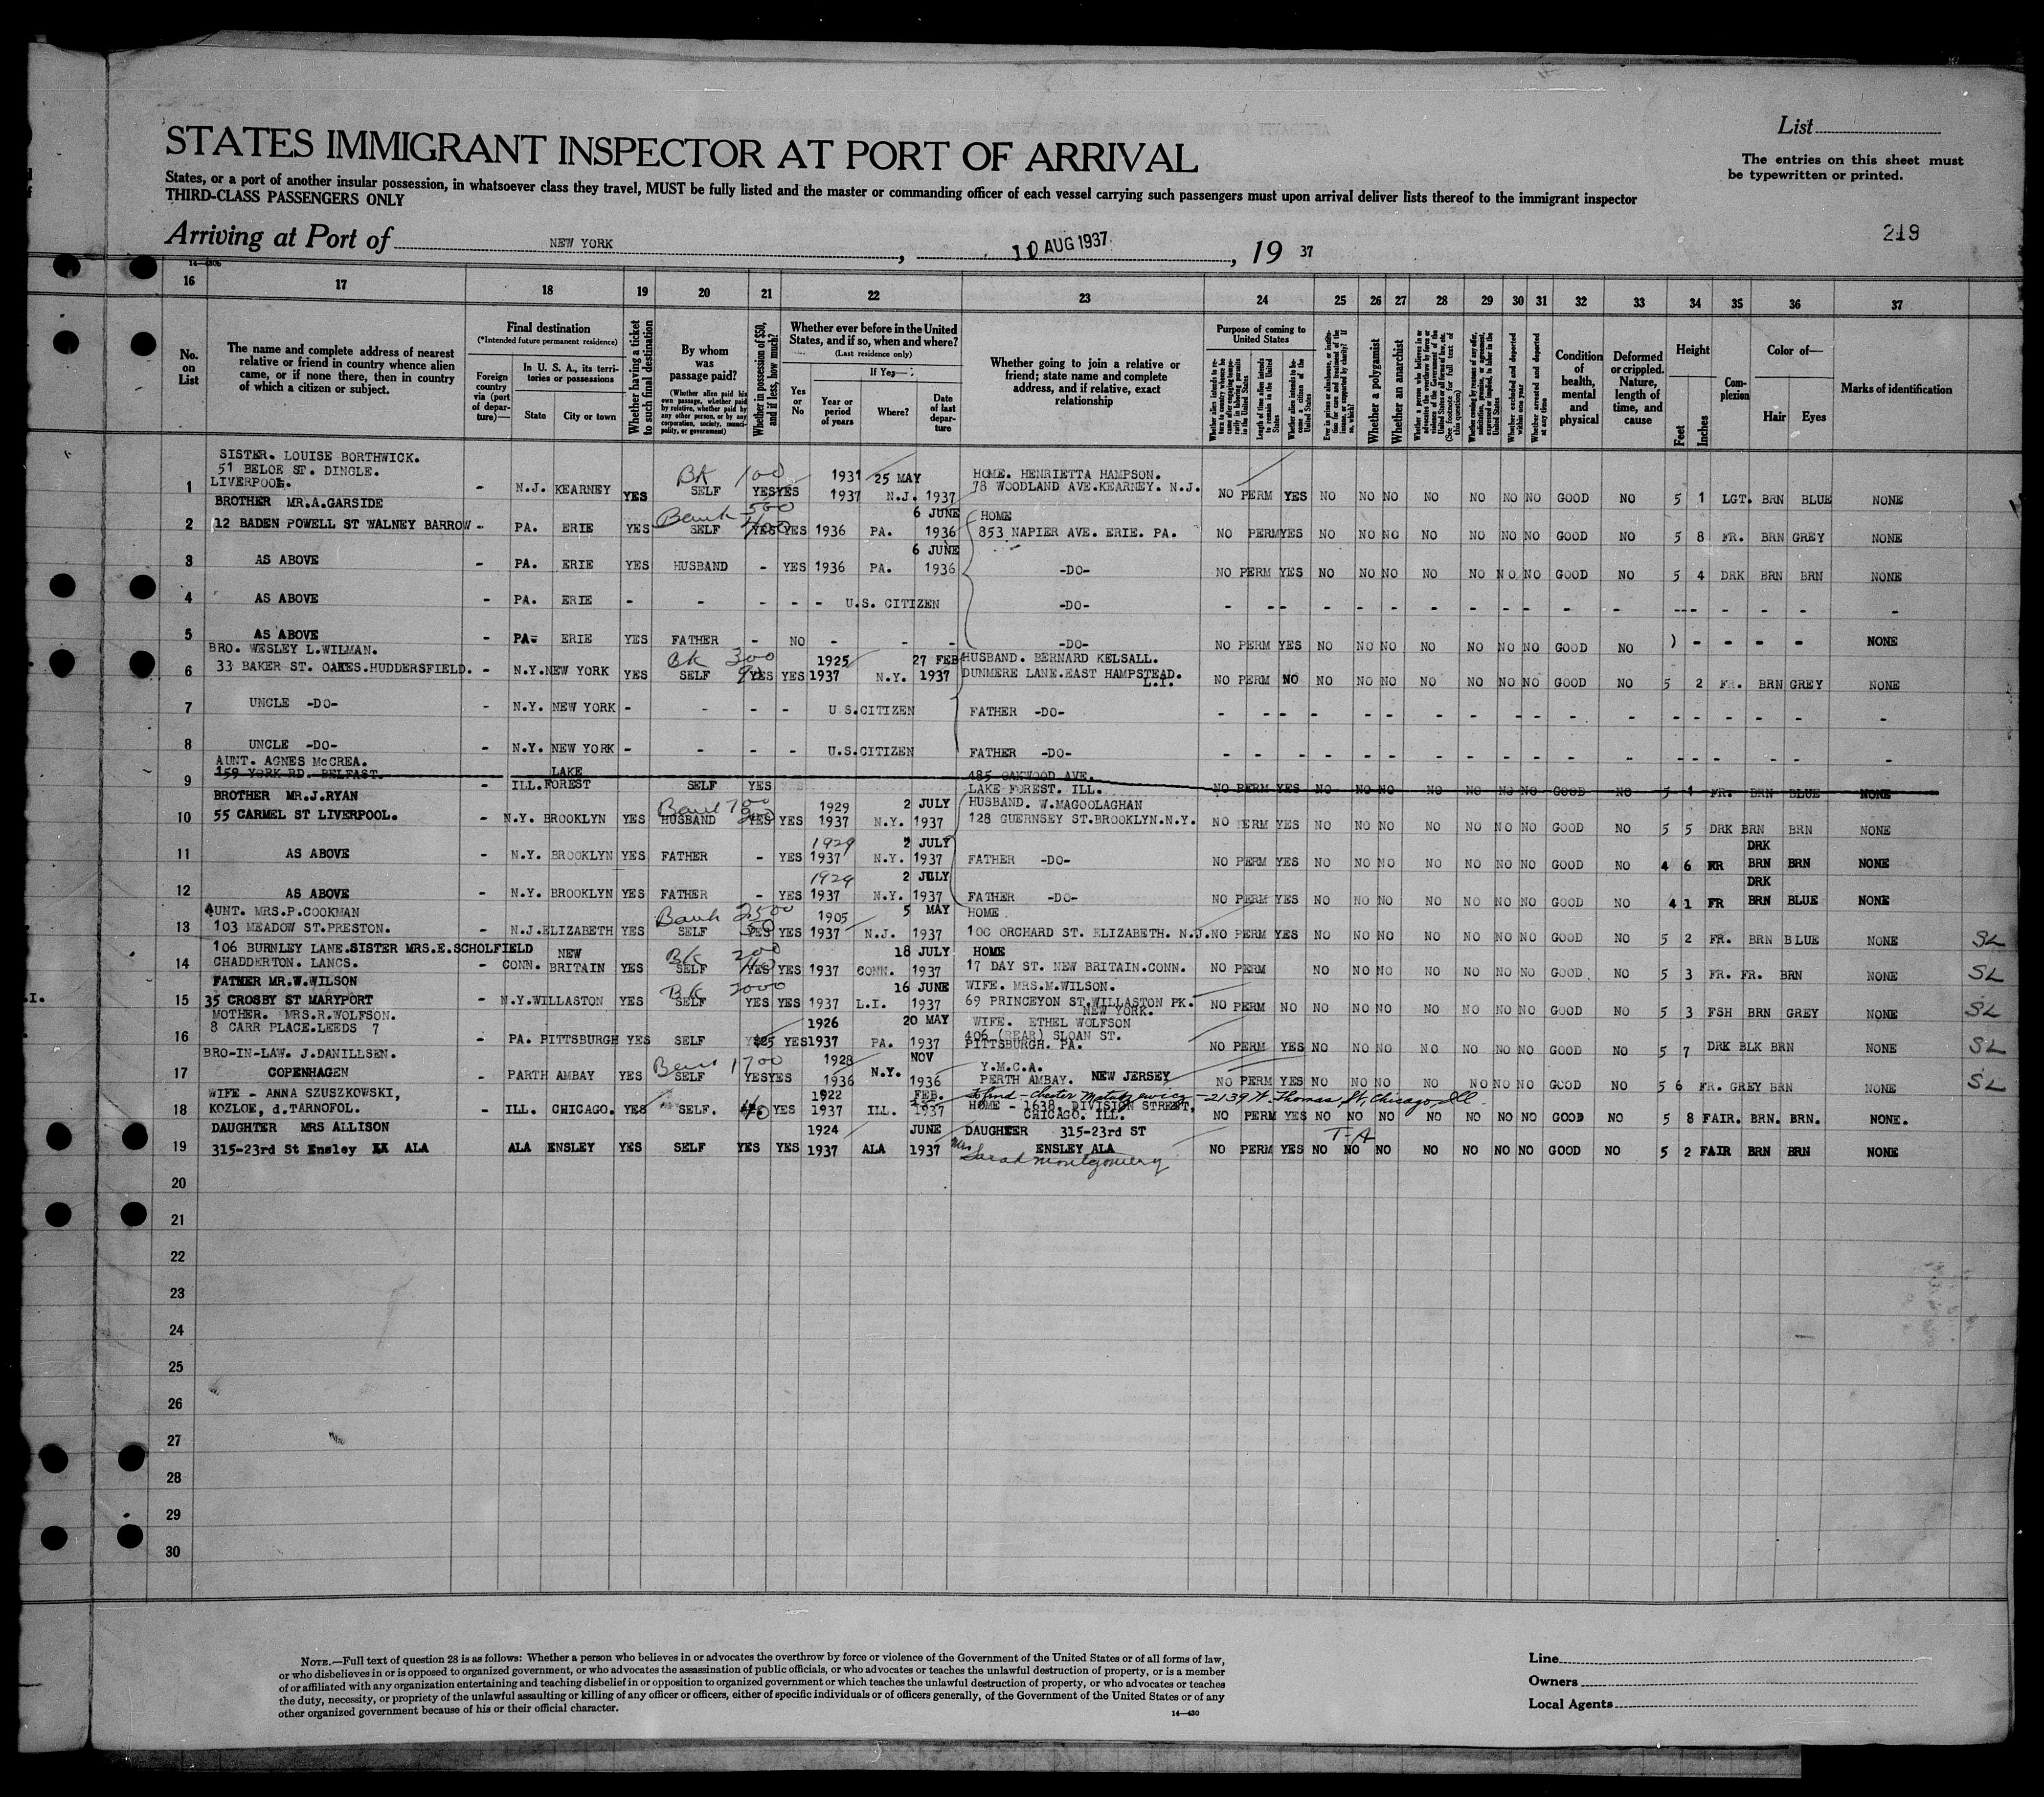 List
The entries on this sheet must
be typewritten or printed.
STATES IMMIGRANT INSPECTOR AT PORT OF ARRIVAL
States, or a port of another insular possession, in whatsoever class they travel, MUST be fully listed and the master or commanding officer of each vessel carrying such passengers must upon arrival deliver lists thereof to the immigrant inspector
THIRD-CLASS PASSENGERS ONLY
Arriving at Port of NEW YORK, 10 AUG 1937, 19 37
219
16 17 18 19 20 21 22 23 24 25 26 27 28 29 30 31 32 33 34 35 36 37
No. on List
The name and complete address of nearest relative or friend in country whence alien came, or if none there, then in country of which a citizen or subject.
Final destination
(*Intended future permanent residence)
Foreign country via (port of departure)—
In U. S. A., its territories or possessions
State City or town
Whether having a ticket to such final destination
By whom was passage paid?
(Whether alien paid his own passage, whether paid by relative, whether paid by any other person, or by any corporation, society, municipality, or government)
Whether in possession of $50, and if less, how much?
Whether ever before in the United States, and if so, when and where?
(Last residence only)
Yes or No
If Yes—
Year or period of years
Where?
Date of last departure
Whether going to join a relative or friend; state name and complete address, and if relative, exact relationship
Purpose of coming to United States
Length of time alien intends to remain in the United States
Whether alien intends to become a citizen of the United States
Whether a polygamist
Whether an anarchist
Whether excluded and deported within one year
Whether arrested and deported at any time
Condition of health, mental and physical
Deformed or crippled. Nature, length of time, and cause
Height
Feet Inches
Complexion
Color of—
Hair Eyes
Marks of identification
SISTER. LOUISE BORTHWICK.
51 BELOE ST. DINGLE.
1 LIVERPOOL. - N.J. KEARNEY YES BK 100 SELF YES YES 1931 1937 N.J. 25 MAY 1937 HOME. HENRIETTA HAMPSON. 78 WOODLAND AVE.KEARNEY. N.J. NO PERM YES NO NO NO NO NO NO NO GOOD NO 5 1 LGT. BRN BLUE NONE
BROTHER MR.A.GARSIDE
2 12 BADEN POWELL ST WALNEY BARROW - PA. ERIE YES Bank 500 SELF YES YES 1936 PA. 6 JUNE 1936 HOME 853 NAPIER AVE. ERIE. PA. NO PERM YES NO NO NO NO NO NO NO GOOD NO 5 8 FR. BRN GREY NONE
3 AS ABOVE - PA. ERIE YES HUSBAND - YES 1936 PA. 6 JUNE 1936 -DO- NO PERM YES NO NO NO NO NO NO NO GOOD NO 5 4 DRK BRN BRN NONE
4 AS ABOVE - PA. ERIE - - - - - U.S. CITIZEN -DO- - - - - - - - - - - - - - - - - -
5 AS ABOVE - PA- ERIE YES FATHER - NO - - - -DO- NO PERM YES NO NO NO NO NO NO NO GOOD NO ) - - - - NONE
BRO. WESLEY L.WILMAN.
6 33 BAKER ST. OAKES.HUDDERSFIELD. - N.Y. NEW YORK YES BK 300 SELF YES YES 1925 1937 N.Y. 27 FEB 1937 HUSBAND. BERNARD KELSALL. DUNMERE LANE.EAST HAMPSTEAD. L.I. NO PERM NO NO NO NO NO NO NO NO GOOD NO 5 2 FR. BRN GREY NONE
7 UNCLE -DO- - N.Y. NEW YORK - - - - U.S.CITIZEN FATHER -DO- - - - - - - - - - - - - - - - - -
8 UNCLE -DO- - N.Y. NEW YORK - - - - U.S.CITIZEN FATHER -DO- - - - - - - - - - - - - - - - - -
AUNT. AGNES McCREA.
9 159 YORK RD. BELFAST. - ILL. LAKE FOREST SELF YES 485 OAKWOOD AVE. LAKE FOREST. ILL. NO PERM YES NO NO NO NO NO NO NO GOOD NO 5 1 FR. BRN BLUE NONE
BROTHER MR.J.RYAN
10 55 CARMEL ST LIVERPOOL. - N.Y. BROOKLYN YES Bank 700 HUSBAND YES YES 1929 1937 N.Y. 2 JULY 1937 HUSBAND. W.MAGOOLAGHAN 128 GUERNSEY ST.BROOKLYN.N.Y. NO PERM YES NO NO NO NO NO NO NO GOOD NO 5 5 DRK BRN BRN NONE
11 AS ABOVE - N.Y. BROOKLYN YES FATHER - YES 1929 1937 N.Y. 2 JULY 1937 FATHER -DO- NO PERM YES NO NO NO NO NO NO NO GOOD NO 4 6 FR DRK BRN BRN NONE
12 AS ABOVE - N.Y. BROOKLYN YES FATHER - YES 1929 1937 N.Y. 2 JULY 1937 FATHER -DO- NO PERM YES NO NO NO NO NO NO NO GOOD NO 4 1 FR DRK BRN BLUE NONE
AUNT. MRS.P.COOKMAN
13 103 MEADOW ST.PRESTON. - N.J. ELIZABETH YES Bank 2500 SELF YES YES 1905 1937 N.J. 5 MAY 1937 HOME 100 ORCHARD ST. ELIZABETH. N.J. NO PERM YES NO NO NO NO NO NO NO GOOD NO 5 2 FR. BRN BLUE NONE SL
106 BURNLEY LANE.SISTER MRS.E.SCHOLFIELD
14 CHADDERTON. LANCS. - CONN. NEW BRITAIN YES BK 200 SELF YES YES 1937 CONN. 18 JULY 1937 HOME 17 DAY ST. NEW BRITAIN.CONN. NO PERM NO NO NO NO NO NO NO GOOD NO 5 3 FR. FR. BRN NONE SL
FATHER MR.W.WILSON
15 35 CROSBY ST MARYPORT - N.Y. WILLASTON YES BK 2000 SELF YES YES 1937 L.I. 16 JUNE 1937 WIFE. MRS.M.WILSON. 69 PRINCEYON ST.WILLASTON PK. NEW YORK. NO PERM NO NO NO NO NO NO NO NO GOOD NO 5 3 FSH BRN GREY NONE SL
MOTHER. MRS.R.WOLFSON.
16 8 CARR PLACE.LEEDS 7 - PA. PITTSBURGH YES SELF $25 YES 1926 1937 PA. 20 MAY 1937 WIFE. ETHEL WOLFSON 406 (REAR) SLOAN ST. PITTSBURGH. PA. NO PERM YES NO NO NO NO NO NO NO GOOD NO 5 7 DRK BLK BRN NONE SL
BRO-IN-LAW. J.DANILLSEN.
17 COPENHAGEN - PARTH AMBAY YES 1700 SELF YES YES 1928 1936 N.Y. NOV 1936 Y.M.C.A. PERTH AMBAY. NEW JERSEY NO PERM YES NO NO NO NO NO NO NO GOOD NO 5 6 FR. GREY BRN NONE SL
WIFE - ANNA SZUSZKOWSKI,
18 KOZLOE, d.TARNOFOL. - ILL. CHICAGO. YES SELF. 40 YES 1922 1937 ILL. FEB. 1937 HOME - 1638, DIVISION STREET, CHICAGO. ILL. - 2139 W. Thomas St, Chicago, Ill. NO PERM YES NO NO NO NO NO NO NO GOOD NO 5 8 FAIR. BRN. BRN. NONE.
DAUGHTER MRS ALLISON
19 315-23rd St Ensley ALA ALA ENSLEY YES SELF YES YES 1924 1937 ALA JUNE 1937 DAUGHTER 315-23rd ST ENSLEY ALA Mrs Sarah Montgomery NO PERM YES T-A NO NO NO NO NO NO NO GOOD NO 5 2 FAIR BRN BRN NONE
20
21
22
23
24
25
26
27
28
29
30
NOTE.—Full text of question 28 is as follows: Whether a person who believes in or advocates the overthrow by force or violence of the Government of the United States or of all forms of law,
or who disbelieves in or is opposed to organized government, or who advocates the assassination of public officials, or who advocates or teaches the unlawful destruction of property, or is a member
of or affiliated with any organization entertaining and teaching disbelief in or opposition to organized government or which teaches the unlawful destruction of property, or who advocates or teaches
the duty, necessity, or propriety of the unlawful assaulting or killing of any officer or officers, either of specific individuals or of officers generally, of the Government of the United States or of any
other organized government because of his or their official character.
14—430
Line
Owners
Local Agents